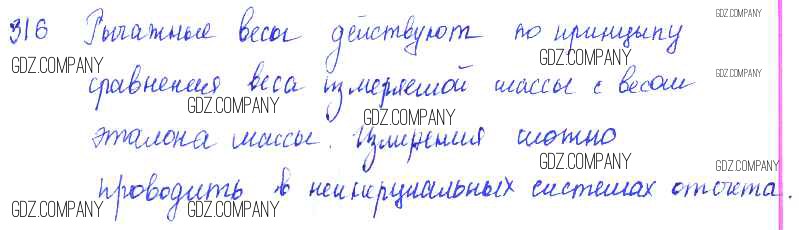 316 Рычажные весы действуют по принципу
GDZ.COMPANY
GDZ.COMPANY
GDZ.COMPANY
сравнения веса измеряемой массы с весом
GDZ.COMPANY
GDZ.COMPANY
GDZ.COMPANY
эталона массы. Измерения можно
GDZ.COMPANY
GDZ.COMPANY
проводить в неинерциальных системах отсчета.
GDZ.COMPANY
GDZ.COMPANY